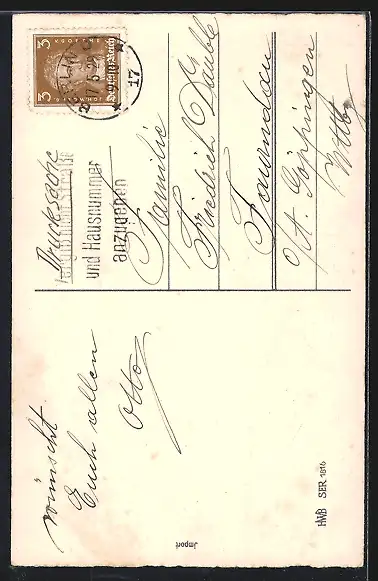 3 3
J.W. GOETHE
Deutsches Reich
BERLIN
17.5.2
17
Drucksache
und Hausnummer
anzugeben
Familie
Friedrich Däuble
Faurndau
O/A. Göppingen
Wttbg
wünscht
Euch allen
Otto
Import
HWB SER 1816